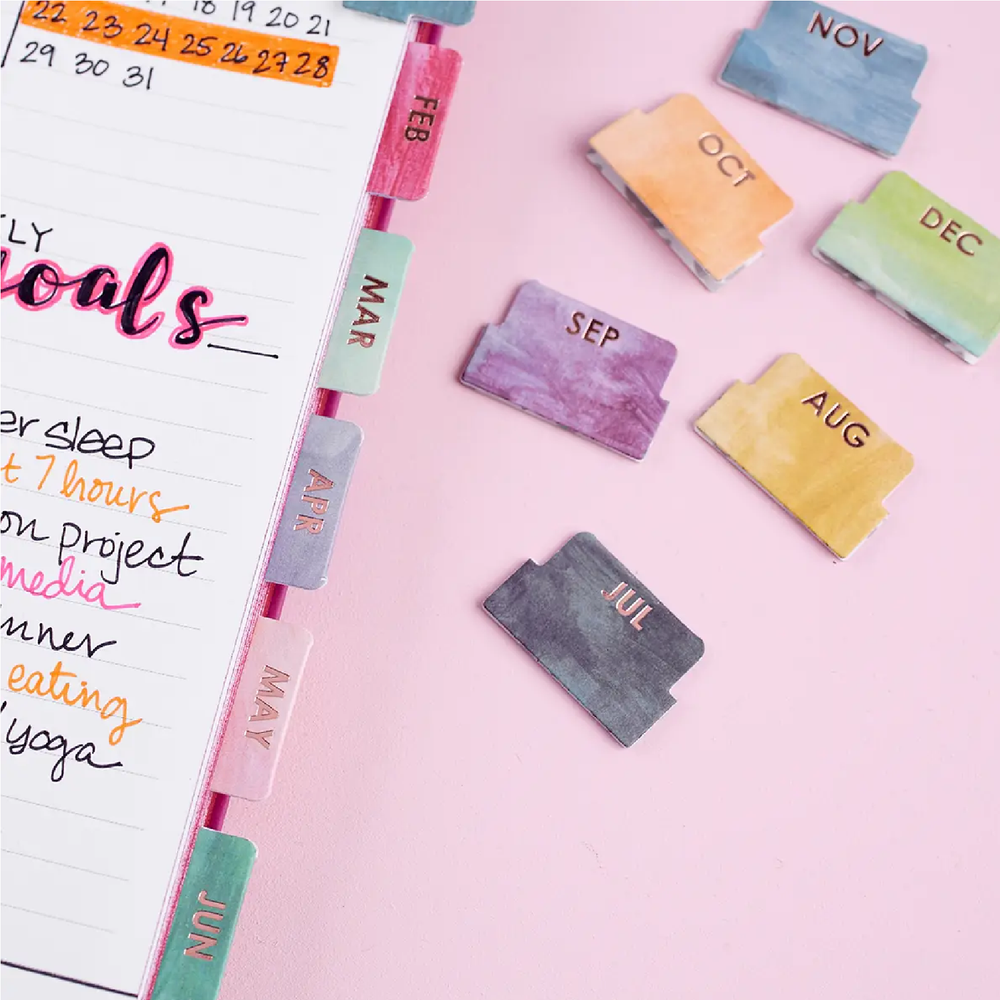 18 19 20 21
22 23 24 25 26 27 28
29 30 31
LY
goals
sleep
7 hours
on project
media
eating
yoga
FEB
MAR
APR
MAY
JUN
NOV
OCT
DEC
SEP
AUG
JUL